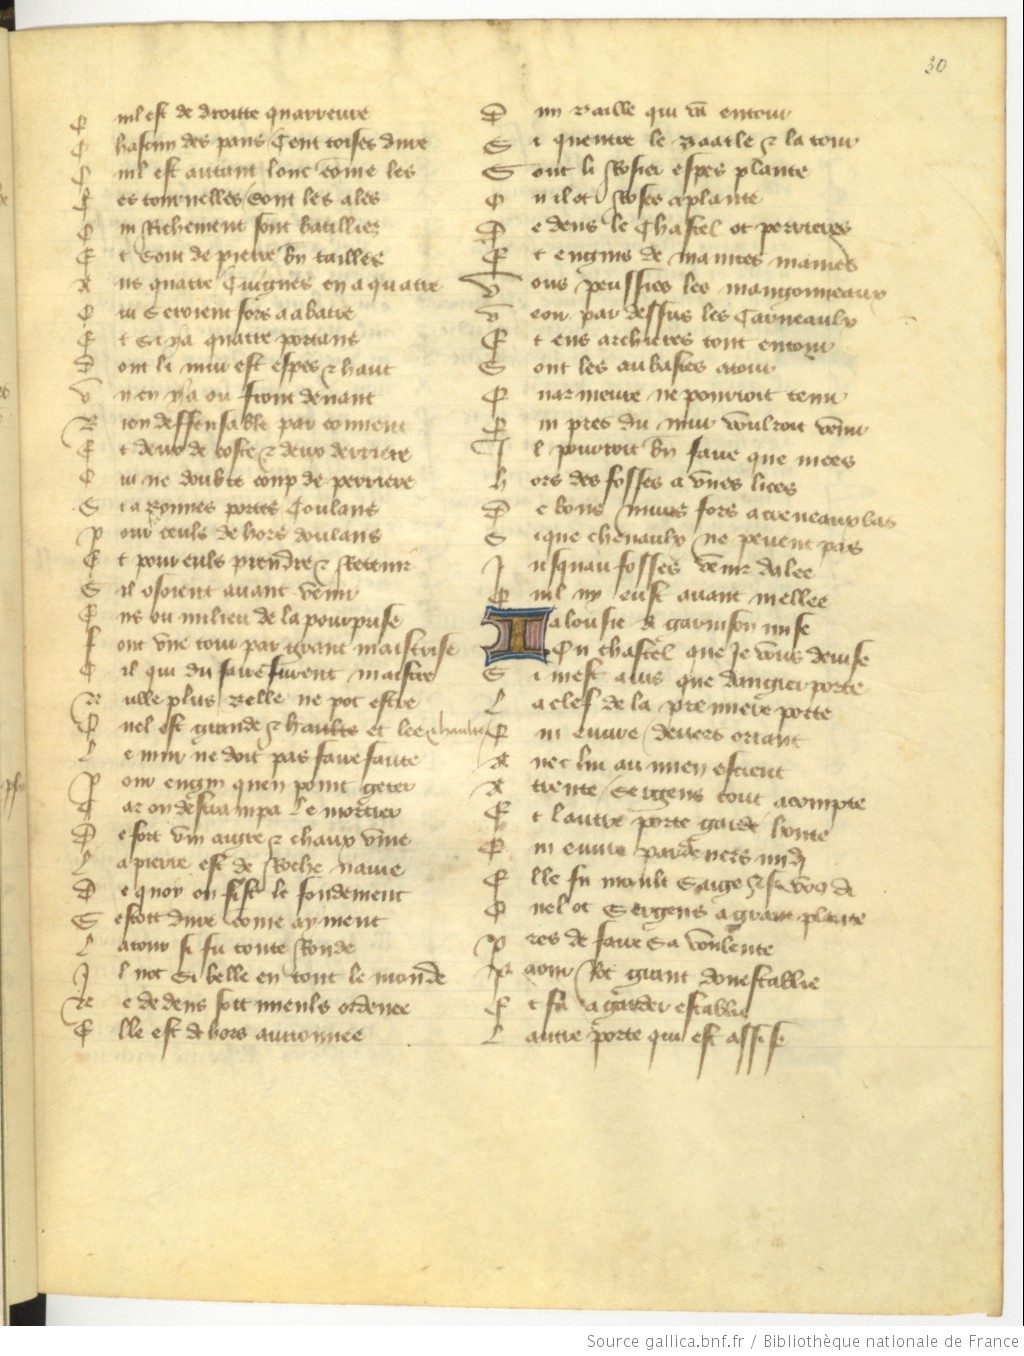 30
Quil est de droitte quarreure
Chascun des pans Cent toises dure
Quil est autant lonc come les
Les tournelles sont les ales
Qui Richement sont batillies
Et sont de pierre bn taillees
Aus quatre Cuignes en a quatre
Qui seroient fors a abatre
Et si ya quatre portaus
Dont li mur est espes & haut
Un en y a ou front devant
Bien deffensable par convent
Et deux de coste & deux derriere
Qui ne doubte coup de perriere
Si a bonnes portes Coulans
Pour ceuls dehors doulans
Et pour euls prendre & Retenir
Sil osoient avant venir
Ens ou milieu de la pourprise
Font une tour par grant maistrise
Cil qui du faire furent maistre
Nulle plus belle ne pot estre
Quel est grande & haulte et lee & haulte
Le mur ne doit pas faire faute
Pour engin quen point geter
Car on destrampa Le mortier
De fort vin aigre & chaux vive
La pierre est de Roche naive
De quoy on fist le fondement
Sestoit dure come ayment
La tour si fu toute Ronde
Il not si belle en tout le monde
Ne dedens soit mieuls ordenee
Elle est dehors avironnee
Dun Baille qui va entour
Si quentre le Baalle & la tour
Sont li Rosier espes plante
Ou il ot Roses a plante
Dedens le Chastel ot perrieres
Et engins de maintes manieres
Vous peussies les mangonneaux
Veoir par dessus les Carneaulx
Et ens archieres tout entour
Sont les aubastes atour
Quarmeure ne pourroit tenir
Qui pres du mur voulroit venir
Il pourroit bn faire que nices
Hors des fosses a unes lices
De bons murs fors a creneaux bas
Si que chevaulx ne pevent pas
Jusquau fosses venir dalee
Quil ny eust avant mellee
Jalousie a garnison mise
Ou chastel que Je vous devise
Si mest avis que dangier porte
La clef de la premiere porte
Qui euvre devers oriant
Avec lui au mien escient
A trente sergens tout a compte
Et lautre porte garde honte
Qui euvre par devers midy
Elle fu moult saige & si vous dy
Quel ot sergens a grant plante
Pres de faire sa voulente
Paour Rot grant connestablie
Et fu a garder establie
Lautre porte qui est assise
Source gallica.bnf.fr / Bibliothèque nationale de France